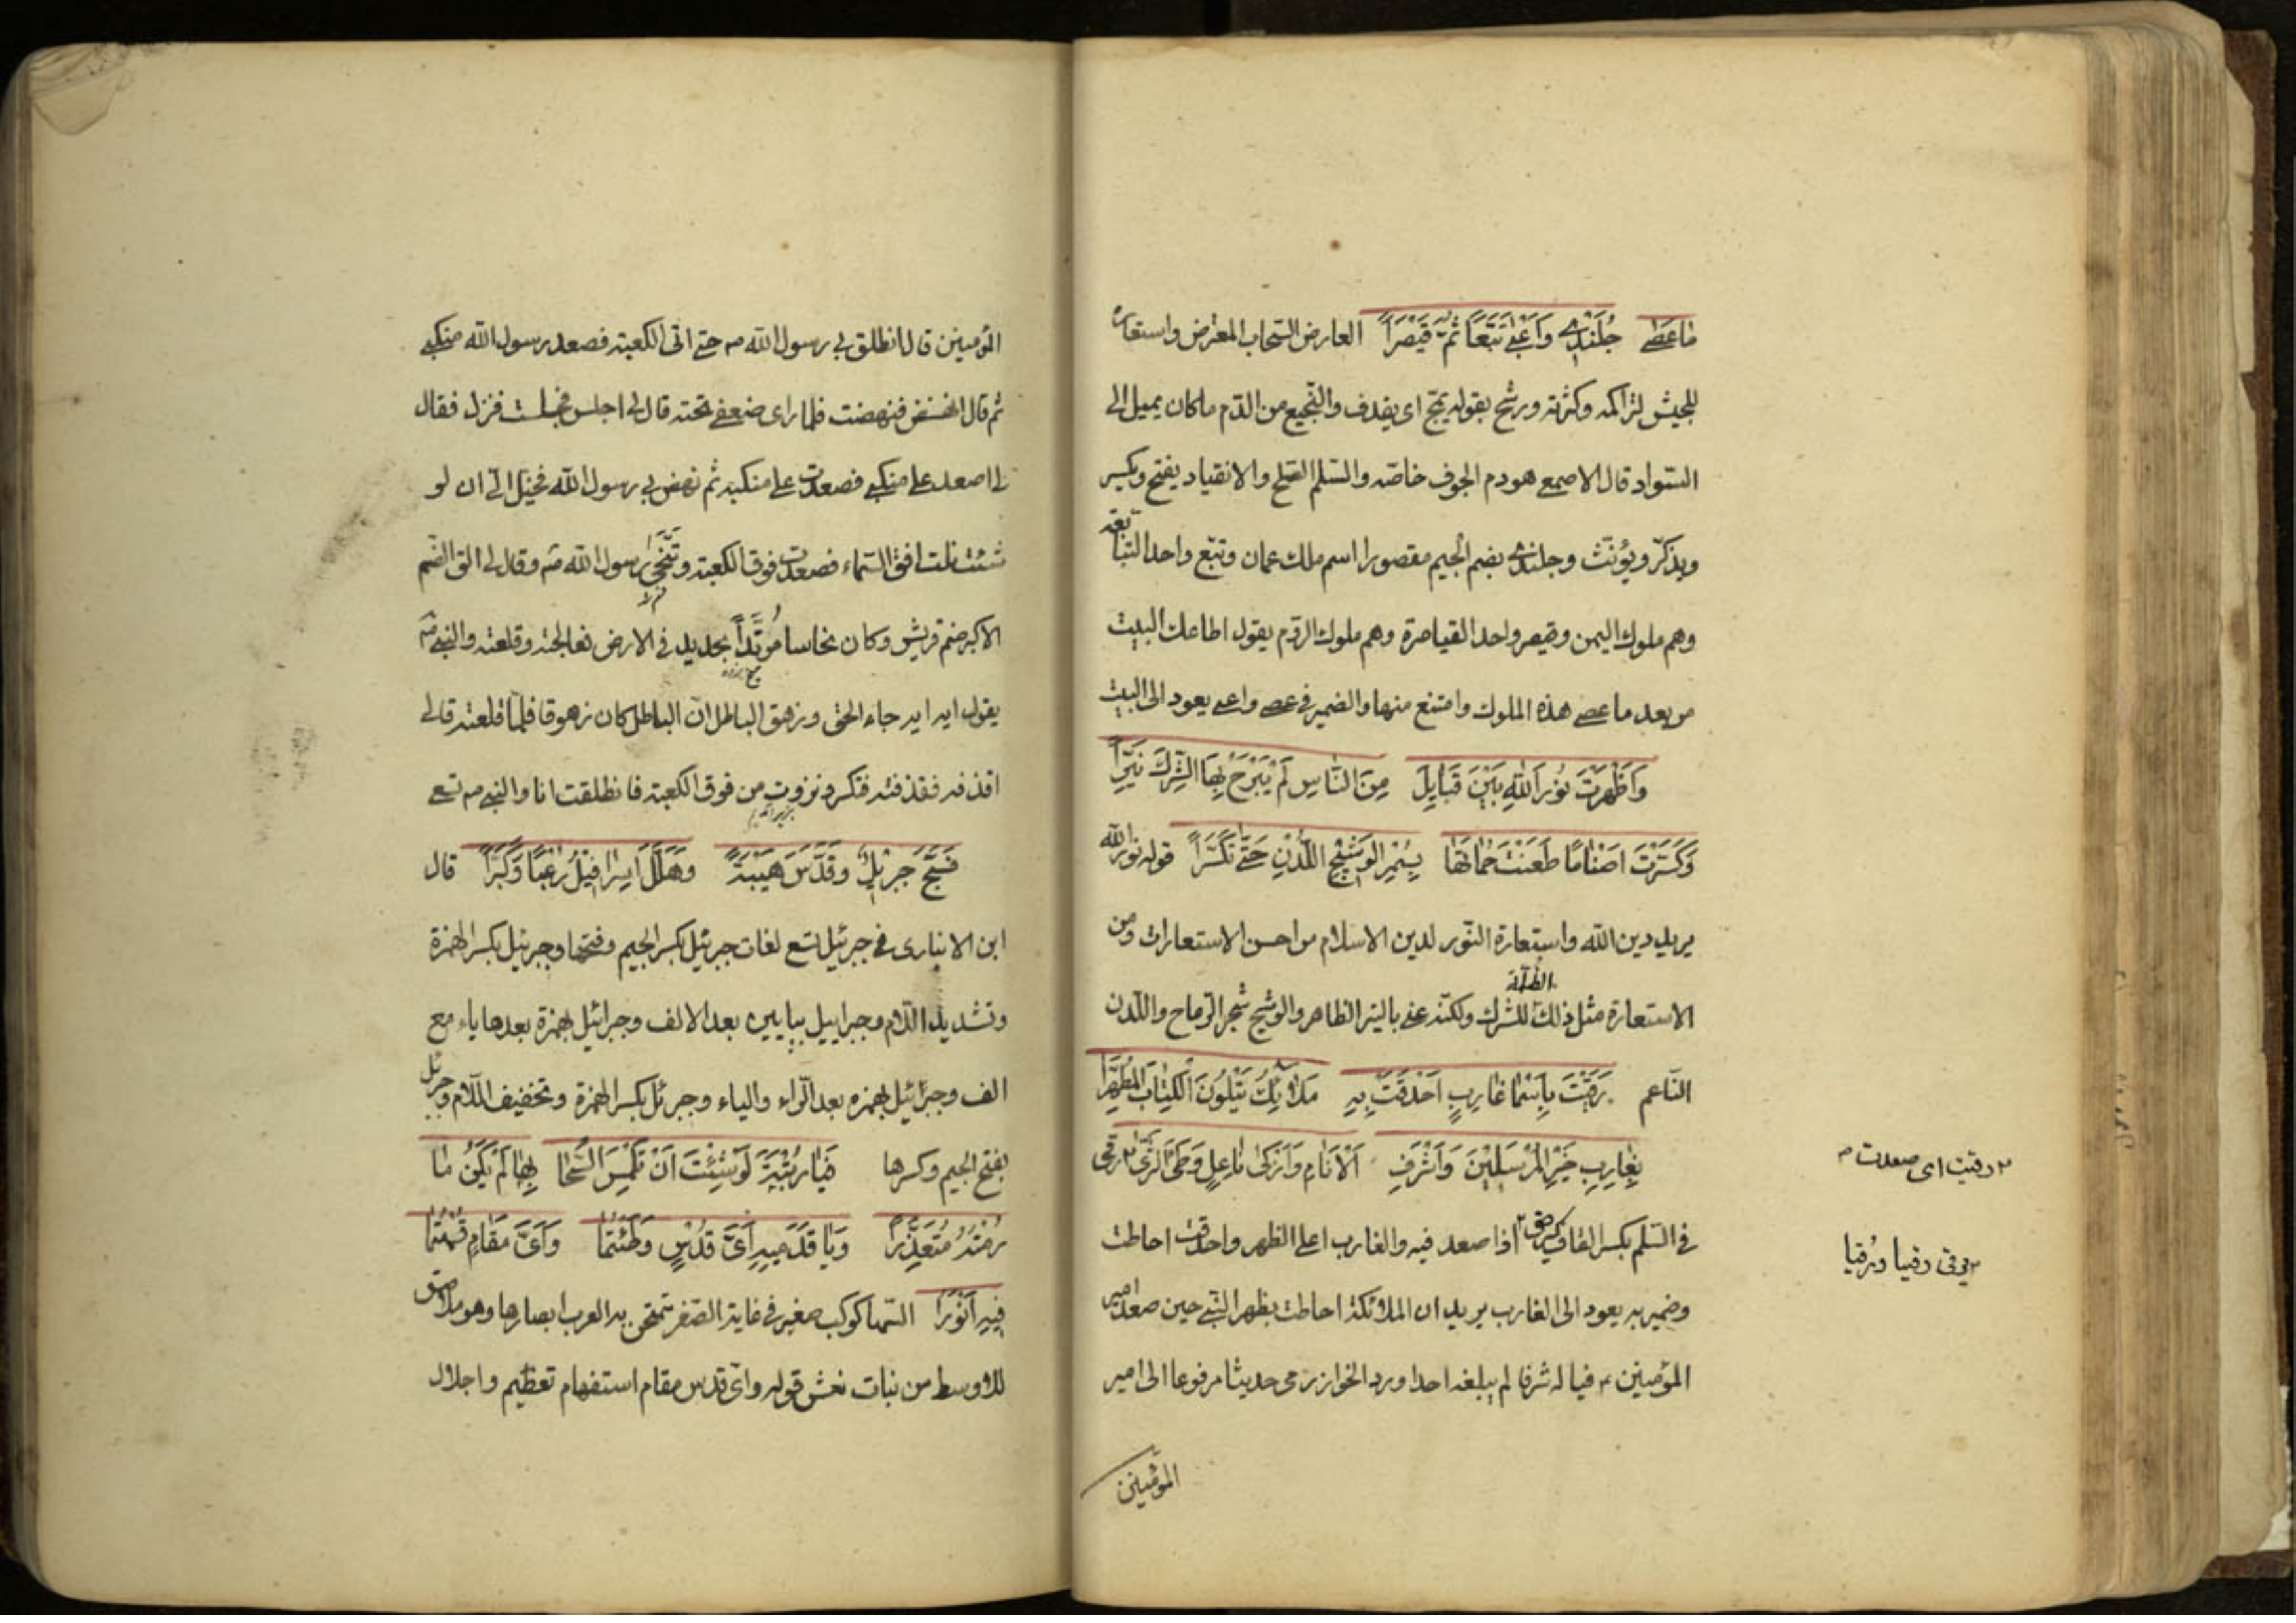 ما عَصٰى جُلَنْدٰى وَاَعْيٰى تُبَّعًا ثُمَّ قَيْصَرًا العارض السّحاب المعترض واستعاره
للجيش لتراكمه وكثرته ورشح بقوله يمجّ اى يقذف والنّجيع من الدّم ماكان يميل الى
السّواد قال الاصمعى هو دم الجوف خاصّه والسّلم الصّلح والانقياد يفتح ويكسر
ويذكّر ويؤنّث وجلندى بضم الجيم مقصورا اسم ملك عمان وتبّع واحد التّبابعة
وهم ملوك اليمن وقيصر واحد القياصرة وهم ملوك الرّوم يقول اطاعك البيت
من بعد ما عصى هذه الملوك وامتنع منها والضمير فى عصى واعيى يعود الى البيت
وَاَظْهَرْتَ نُورَ اللّٰهِ بَيْنَ قَبَايِلَ مِنَ النّاسِ لَمْ يَبْرَحْ بِهَا الشِّرْكُ نَيِّرًا
وَكَسَّرْتَ اَصْنَامًا طَعَنْتَ حُمَاتَهَا بِسُمْرِ الْوَشِيْجِ اللُّدْنِ حَتّٰى تَكَسَّرَا قوله نور الله
يريد دين الله واستعارة النّور لدين الاسلام من احسن الاستعارات ومن
الاستعارة مثل ذلك الظلمة للشرك ولكنّه عنى بالنيّر الظاهر والوشيج شجر الرّماح واللّدن
النّاعم رَقِيْتَ بِاَسْمٰا غَارِبٍ اَحْدَقَتْ بِهِ مَلٰائِكُ يَتْلُونَ الْكِتَابَ الْمُطَهَّرَا
بِغَارِبِ خَيْرِ الْمُرْسَلِيْنَ وَاَشْرَفِ الْاَنَامِ وَاَزْكٰى نَاعِلٍ وَطِئَ الثَّرٰى رقى
فى السّلم بكسر القاف يرقى اذا صعد فيه والغارب اعلى الظهر واحدقت احاطت
وضمير به يعود الى الغارب يريد ان الملائكة احاطت بظهر النّبى حين صعد امير
المؤمنين ع فياله شرفا لم يبلغه احدا ورد الخوارزمى حديثا مرفوعا الى امير
المؤمنين
رقيت اى صعدت م
يرقى رقيا ورُقيا
المؤمنين قال انطلق بى رسول الله ص حتى اتى الكعبة فصعد رسول الله منكبى
ثم قال انهض فنهضت فلما راى ضعفى تحته قال لى اجلس فجلست فنزل فقال
لى اصعد على منكبى فصعدت على منكبيه ثم نهض بى رسول الله فخيّل الىّ ان لو
شئت نلت افق السّماء فصعدت فوق الكعبة وتَنَحّٰى رسول الله ص وقال لى الق الصّنم
الاكبر صنم قريش وكان نحاسا مُوَتَّدًا بحديد فى الارض فعالجته وقلعته والنبى ص
يقول ايه ايه جاء الحق وزهق الباطل انّ الباطل كان زهوقا فلمّا قلعته قال لى
اقذفه فقذفته فتكسر ونزوت من فوق الكعبة فانطلقت انا والنبى ص نسعى
فَسَبَّحَ جِبْرِيْلٌ وَقَدَّسَ هَيْبَةً وَهَلَّلَ اِسْرَافِيْلُ رُعْبًا وَكَبَّرَا قال
ابن الانبارى فى جبرئيل تسع لغات جبرئيل بكسر الجيم وفتحها وجبرئيل بكسر الهمزة
وتشديد اللّام وجبراييل بيايين بعد الالف وجبرائيل بهمزة بعدها ياء مع
الف وجبرئيل بهمزه بعد الرّاء والياء وجبرئل بكسر الهمزة وتخفيف اللّام وجبرئل
بفتح الجيم وكسرها فَيٰا رُتْبَةً لَوْ شِئْتَ اَنْ تَلْمِسَ السُّهٰا بِهٰا لَمْ يَكُنْ مٰا
رُمْتَهُ مُتَعَذِّرًا وَيٰا قَدَمَيْهِ اَىَّ قُدْسٍ وَطِئْتُمٰا وَاَىَّ مَقَامٍ قُمْتُمٰا
فِيْهِ اَنْوَرَا السّها كوكب صغير فى غاية الصّغر تمتحن به العرب ابصارها وهو ملاصق
للاوسط من بنات نعش قوله واىّ قدس مقام استفهام تعظيم واجلال